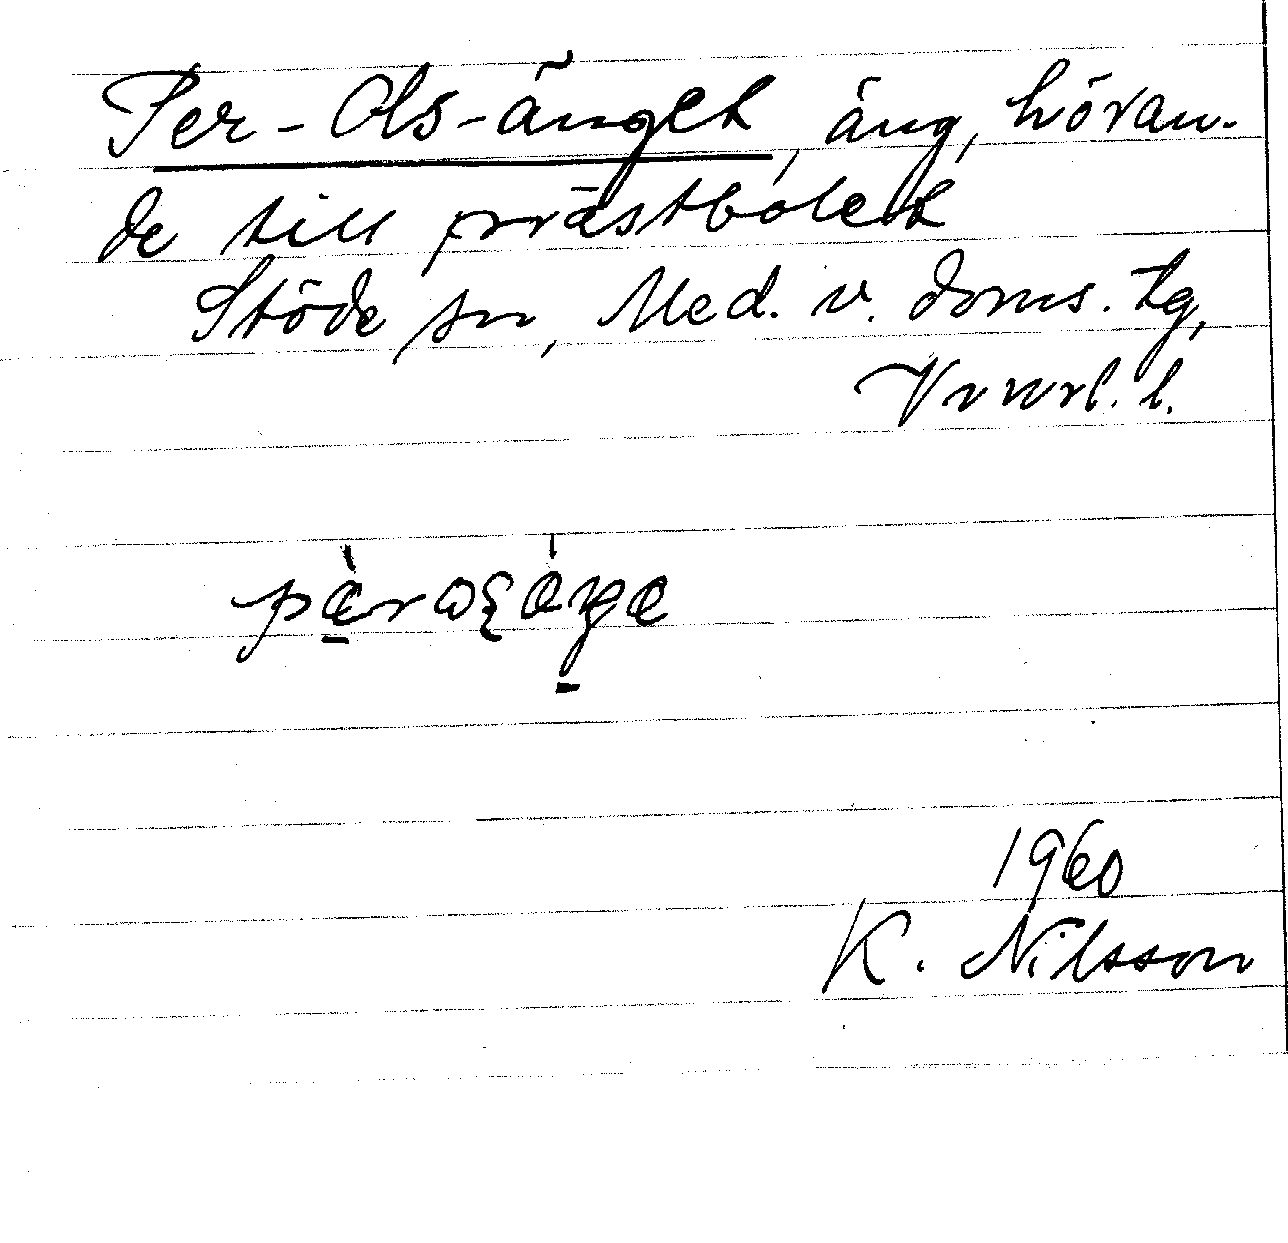 Per-Ols-änget, äng, höran-
de till prästbolet
Stöde sn, Med. v. doms. tg,
Vnrl. l.
1960
K. Nilsson